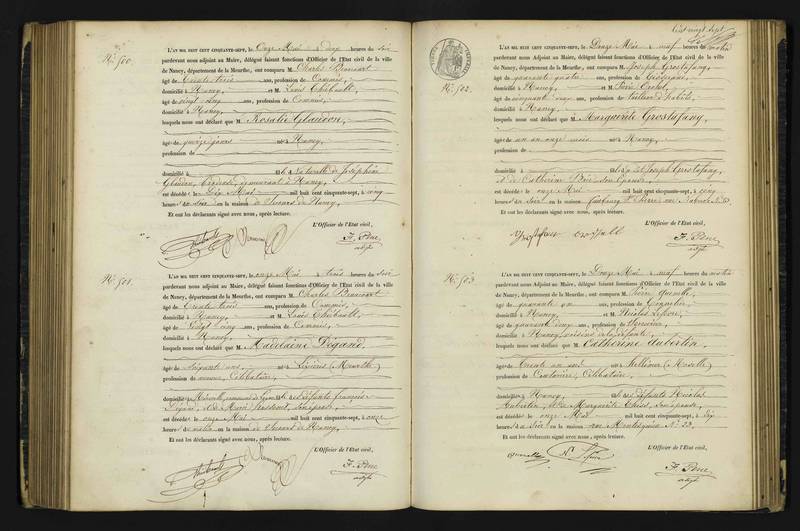 N.° 500.
L'AN MIL HUIT CENT CINQUANTE-SEPT, le Onze Mai à deux heures du soir
pardevant nous Adjoint au Maire, délégué faisant fonctions d'Officier de l'Etat civil de la ville
de Nancy, département de la Meurthe, ont comparu M. Charles
âgé de trente trois ans, profession de Commis,
domicilié à Nancy, et M. Louis Thiébault,
âgé de vingt cinq ans, profession de Commis,
domicilié à Nancy,
lesquels nous ont déclaré que M. Rosalie Glaudon,
âgé de quinze jours né à Nancy,
profession de
domicilié à fille Naturelle de Joséphine
Glaudon, demeurant à Nancy,
est décédé le Dix Mai mil huit cent cinquante-sept, à cinq
heures du soir en la maison de Secours de Nancy,
Et ont les déclarants signé avec nous, après lecture.
L'Officier de l'Etat civil,
Thiébault
F. Pêne
adjt
N.° 501.
L'AN MIL HUIT CENT CINQUANTE-SEPT, le onze Mai à trois heures du soir
pardevant nous Adjoint au Maire, délégué faisant fonctions d'Officier de l'Etat civil de la ville
de Nancy, département de la Meurthe, ont comparu M. Charles
âgé de trente trois ans, profession de Commis,
domicilié à Nancy, et M. Louis Thiébault,
âgé de Vingt cinq ans, profession de Commis,
domicilié à Nancy,
lesquels nous ont déclaré que M. Madelaine Dégand,
âgé de soixante ans, né à (Moselle)
profession de Célibataire,
domicilié à fille des défunts François
Dégand, et de Marie son épouse,
est décédé le onze Mai mil huit cent cinquante-sept, à onze
heures du matin en la maison de Secours de Nancy,
Et ont les déclarants signé avec nous, après lecture.
L'Officier de l'Etat civil,
Thiébault
F. Pêne
adjt
Cent vingt sept
N.° 502.
L'AN MIL HUIT CENT CINQUANTE-SEPT, le Douze Mai à neuf heures du matin
pardevant nous Adjoint au Maire, délégué faisant fonctions d'Officier de l'Etat civil de la ville
de Nancy, département de la Meurthe, ont comparu M. Joseph Grostafang,
âgé de quarante quatre ans, profession de
domicilié à Nancy, et M. Pierre
âgé de cinquante ans, profession de tailleur d'habits,
domicilié à Nancy,
lesquels nous ont déclaré que M. Marguerite Grostafang,
âgé de un an onze mois né à Nancy,
profession de
domicilié à fille de Joseph Grostafang,
et de Catherine son épouse,
est décédé le onze Mai mil huit cent cinquante-sept, à cinq
heures du soir en la maison faubourg St Pierre, rue
Et ont les déclarants signé avec nous, après lecture.
L'Officier de l'Etat civil,
F. Pêne
adjt
N.° 503
L'AN MIL HUIT CENT CINQUANTE-SEPT, le Douze Mai à neuf heures du matin
pardevant nous Adjoint au Maire, délégué faisant fonctions d'Officier de l'Etat civil de la ville
de Nancy, département de la Meurthe, ont comparu M. Pierre
âgé de quarante un ans, profession de
domicilié à Nancy, et M. Nicolas Lefèvre,
âgé de quarante deux ans, profession de
domicilié à Nancy, voisins de la défunte,
lesquels nous ont déclaré que M. Catherine Aubertin,
âgé de trente un ans né à (Moselle)
profession de Couturière, Célibataire,
domicilié à Nancy, fille des défunts Nicolas
Aubertin, et de Marguerite son épouse,
est décédé le onze Mai mil huit cent cinquante-sept, à six
heures du soir en la maison rue Montesquieu N.° 23,
Et ont les déclarants signé avec nous, après lecture.
L'Officier de l'Etat civil,
F. Pêne
adjt